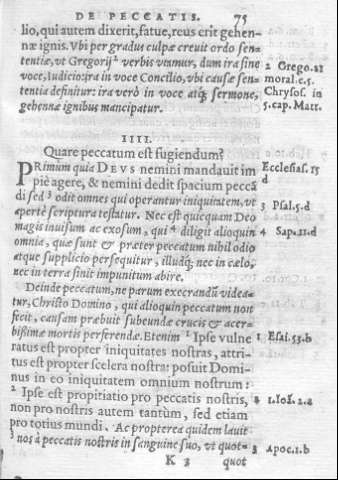 DE PECCATIS. 75
lio, qui autem dixerit, fatue, reus erit gehen-
næ ignis. Vbi per gradus culpæ creuit ordo sen-
tentiæ, vt Gregorij² verbis vtamur, dum ira sine
voce, Iudicio: ira in voce Concilio, vbi causæ sen-
tentia definitur: ira verò in voce atq; sermone,
gehennæ ignibus mancipatur.
2 Grego. 21
moral. c. 5.
Chrysos. in
5. cap. Matt.
IIII.
Quare peccatum est fugiendum?
PRimùm quia DEVS nemini mandauit im
piè agere, & nemini dedit spacium peccã
di sed ³ odit omnes qui operantur iniquitatem, vt
apertè scriptura testatur. Nec est quicquam Deo
magis inuisum ac exosum, qui ⁴ diligit alioquin
omnia, quæ sunt & præter peccatum nihil odio
atque supplicio persequitur, illudq; nec in cælo,
nec in terra sinit impunitum abire.
Ecclesias. 15
d
3 Psal. 5. d
4 Sap. 11. d
Deinde peccatum, ne parum execrandũ videa-
tur, Christo Domino, qui alioquin peccatum non
fecit, causam præbuit subeundæ crucis & acer-
bissimæ mortis perferendæ. Etenim ¹ Ipse vulne
ratus est propter iniquitates nostras, attri-
tus est propter scelera nostra: posuit Domi-
nus in eo iniquitatem omnium nostrum:
² Ipse est propitiatio pro peccatis nostris,
non pro nostris autem tantùm, sed etiam
pro totius mundi. Ac propterea quidem lauit
³ nos à peccatis nostris in sanguine suo, vt quot-
1 Esai. 53. b
2 1. Ioã. 2. a
3 Apoc. 1. b
K 3 quot